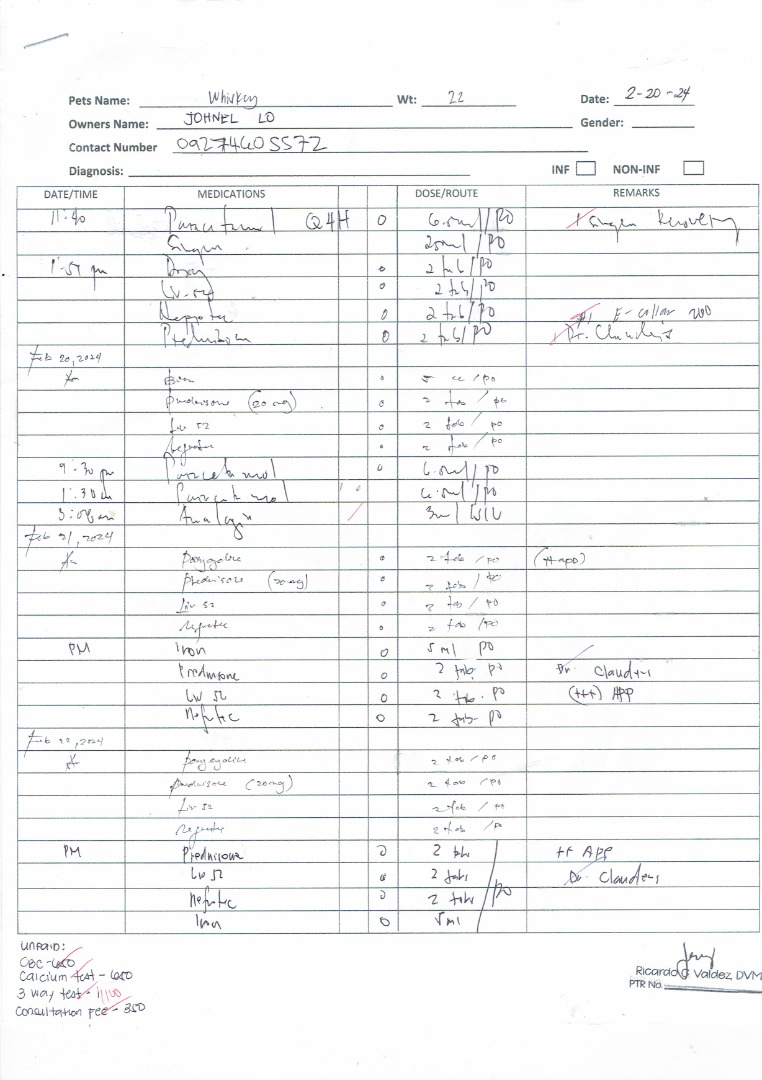 Pets Name: Whiskey Wt: 22 Date: 2-20-24
Owners Name: JOHNEL LO Gender:
Contact Number 09274605572
Diagnosis: INF NON-INF
DATE/TIME MEDICATIONS DOSE/ROUTE REMARKS
11:40 Paracetamol Q4H 0 6.5ml/PO Singen Recovery
Singen 25ml/PO
1:57 pm Doxy 0 2 tab/PO
Liv-52 0 2 tab/PO
0 2 tab/PO E-collar 200
0 2 tab/PO Dr. Claudeis
Feb 20, 2024
0 5 cc/PO
prednisone (20mg) 0 2 tab/po
Liv 52 0 2 tab/PO
0 2 tab/PO
9:30 pm Paracetamol 0 6.5ml/PO
1:30 am Paracetamol 6.5ml/PO
3:00 am Analgin 3ml
Feb 21, 2024
0 2 tab/PO (+app)
Prednisone (20mg) 0 2 tab/PO
Liv 52 0 2 tab/PO
0 2 tab/PO
PM Iron 0 5ml PO
Prednisone 0 2 tab. PO Dr. Claudeis
Liv 52 0 2 tab. PO (+++) APP
Nefrotec 0 2 tab PO
Feb 22, 2024
2 tab/PO
prednisone (20mg) 2 tab/PO
Liv 52 2 tab/PO
2 tab/PO
PM Prednisone 0 2 tabs ++ APP
Liv 52 0 2 tabs Dr. Claudeis
Nefrotec 0 2 tabs PO
Iron 0 5ml
UNPAID:
CBC - 650
Calcium test - 650
3 way test - 1,100
Consultation Fee - 350
Ricardo G Valdez, DVM
PTR No.